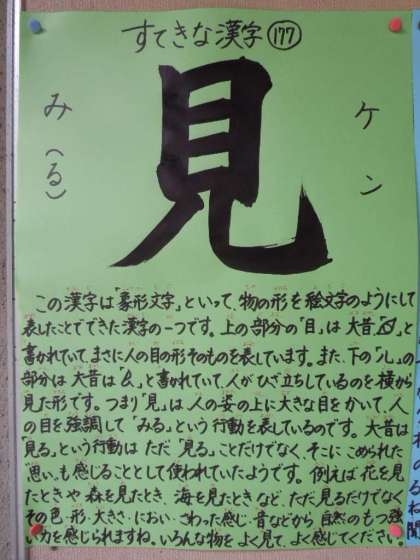 すてきな漢字 177
ケン
見
み(る)
この漢字は「象形文字」といって、物の形を絵文字のようにして
表したことでできた漢字の一つです。上の部分の「目」は大昔「」と
書かれていて、まさに人の目の形そのものを表しています。また、下の「儿」の
部分は大昔は「」と書かれていて、人がひざ立ちしているのを横から
見た形です。つまり「見」は人の姿の上に大きな目をかいて、人
の目を強調して「みる」という行動を表しているのです。大昔は
「見る」という行動はただ「見る」ことだけでなく、そこにこめられた
「思い」も感じることとして使われていたようです。例えば花を見
たときや森を見たとき、海を見たときなど、ただ見るだけでなく
その色・形・大きさ・におい・さわった感じ・音などから自然のもつ強
い力を感じられますね。いろんな物をよく見て、よく感じてください。